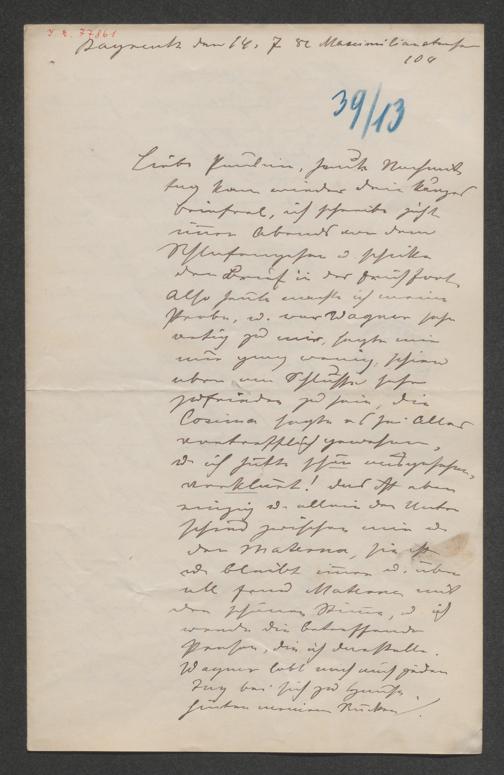 Bayreuth den 14. 7 82 Maximilianstrasse
104
39/13
Liebe Paulin, heute Nachmit
tag kam wieder dein
ich schreibe jetzt
immer Abends vor dem
Schlafengehen u schicke
den Brief in der Früh fort.
Also heute machte ich meine
Probe, u. war Wagner sehr
artig zu mir, sagte mir
nur ganz wenig, schien
aber am Schlusse sehr
zufrieden zu sein, die
Cosima sagte es sei Alles
vortrefflich gewesen,
u. ich hätte schön ausgesehen,
verklärt! das ist eben
einzig u. allein der Unter
schied zwischen mir u.
der Materna, sie ist
u. bleibt immer u. über
all Frau Materna mit
der schönen Stimme, u ich
werde die betreffende
Person, die ich darstelle.
Wagner lobt mich auch jeden
Tag bei sich zu Hause,
hinter meinem Rücken!